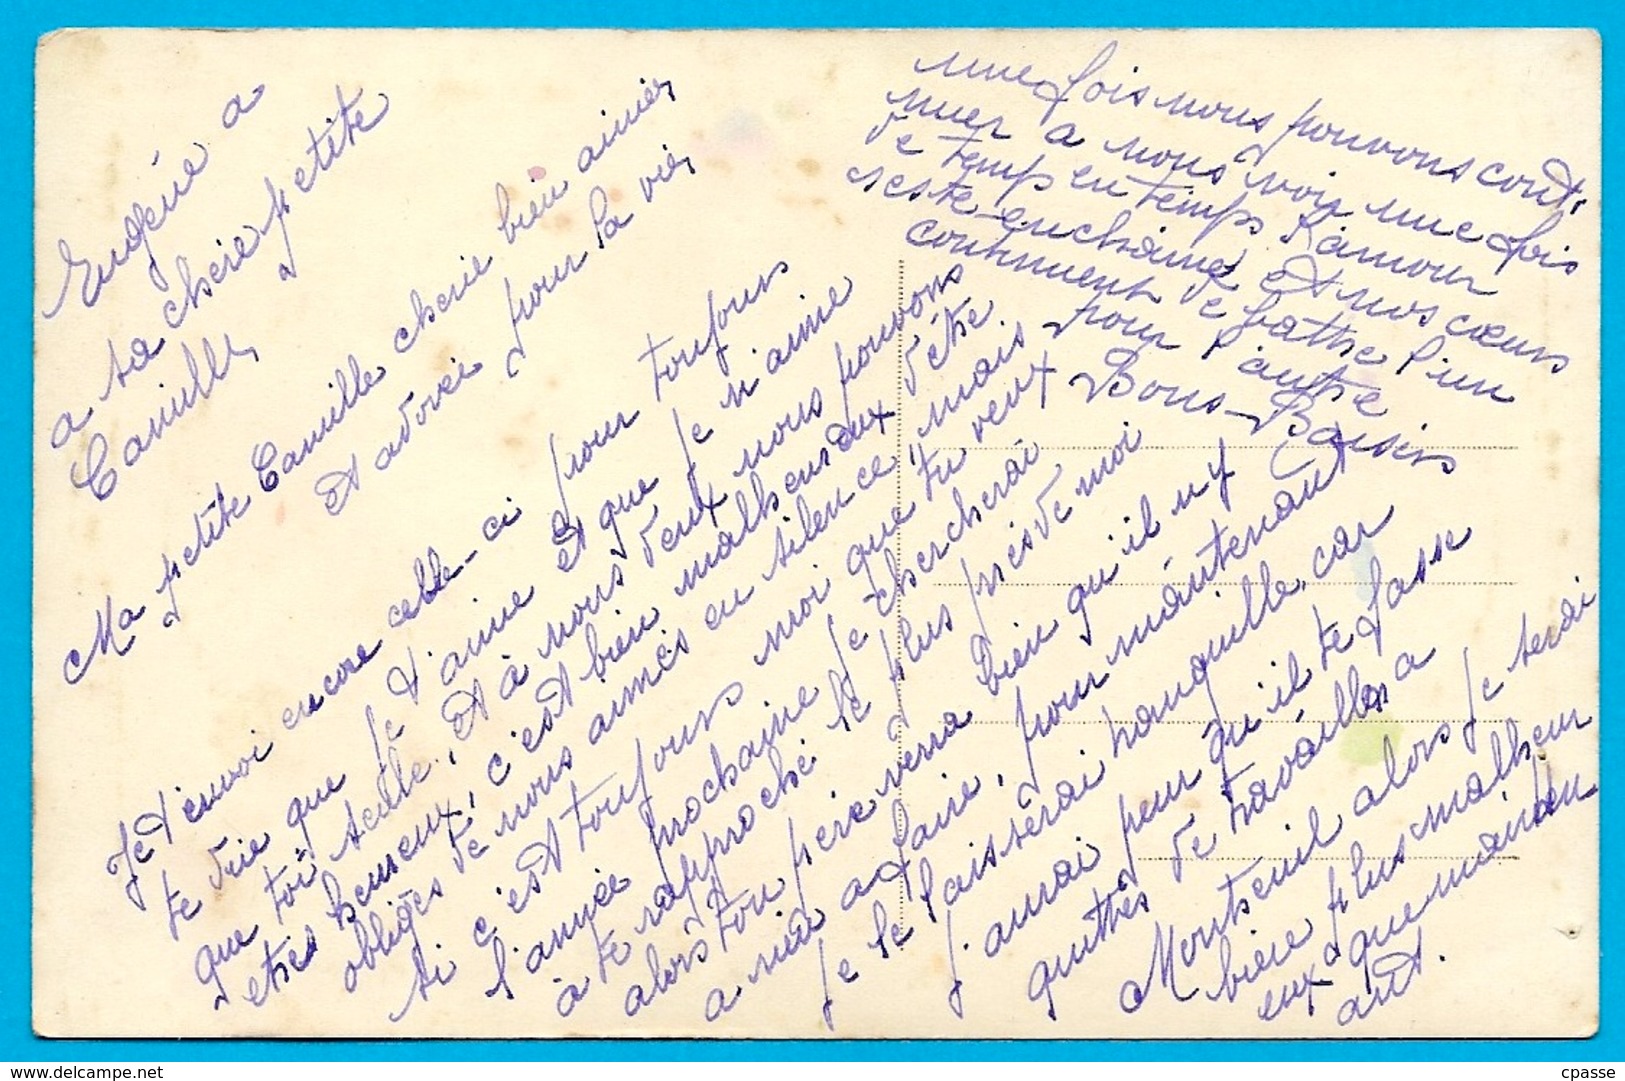 Eugène a
a sa chérie petite
Camille,
Ma petite Camille cherie bien aimier
et adorée pour la vie,
Je t'envoi encore celle-ci pour toujours
te dire que je t'aime et que je n'aime
que toi seulle, et à nous deux nous pouvons
etre heureux, c'est bien malheureux d'être
obligés de nous aimés en silence, mais
si c'est toujours moi que tu veux
l'année prochaine je chercherai
à te rapproché le plus près de moi
alors ton père verra bien qu'il n'y
a rien a faire, pour maintenant
je le laisserai tranquille, car
j'aurai peur qu'il te fasse
quittés de travailler a
Montreuil alors je serai
bien plus malheur
eux que mainten
ant.
une fois nous pouvons conti,
nuer a nous voir une fois
de temp en temps l'amour
reste enchainé et nos cœurs
continuent de battre l'un
pour l'autre
Bons-Baisers
cpasse